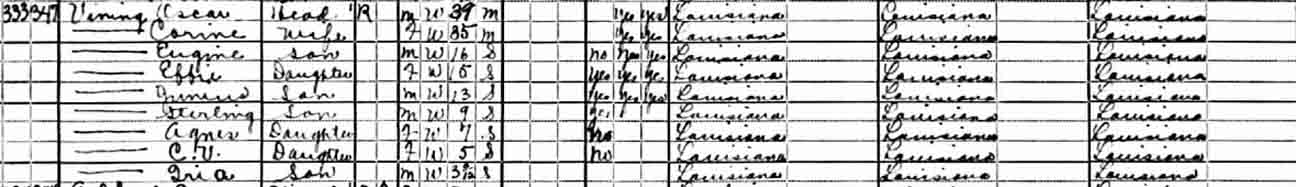 333 347 Vining Oscar Head R M W 39 M Yes Yes Louisiana Louisiana Louisiana
Corine Wife F W 35 M Yes Yes Louisiana Louisiana Louisiana
Eugine Son M W 16 S no Yes Yes Louisiana Louisiana Louisiana
Effie Daughter F W 15 S Yes Yes Yes Louisiana Louisiana Louisiana
Son M W 13 S Yes Yes Yes Louisiana Louisiana Louisiana
Sterling Son M W 9 S Yes Louisiana Louisiana Louisiana
Agnes Daughter F W 7 S no Louisiana Louisiana Louisiana
C.V. Daughter F W 5 S no Louisiana Louisiana Louisiana
Son M W S Louisiana Louisiana Louisiana